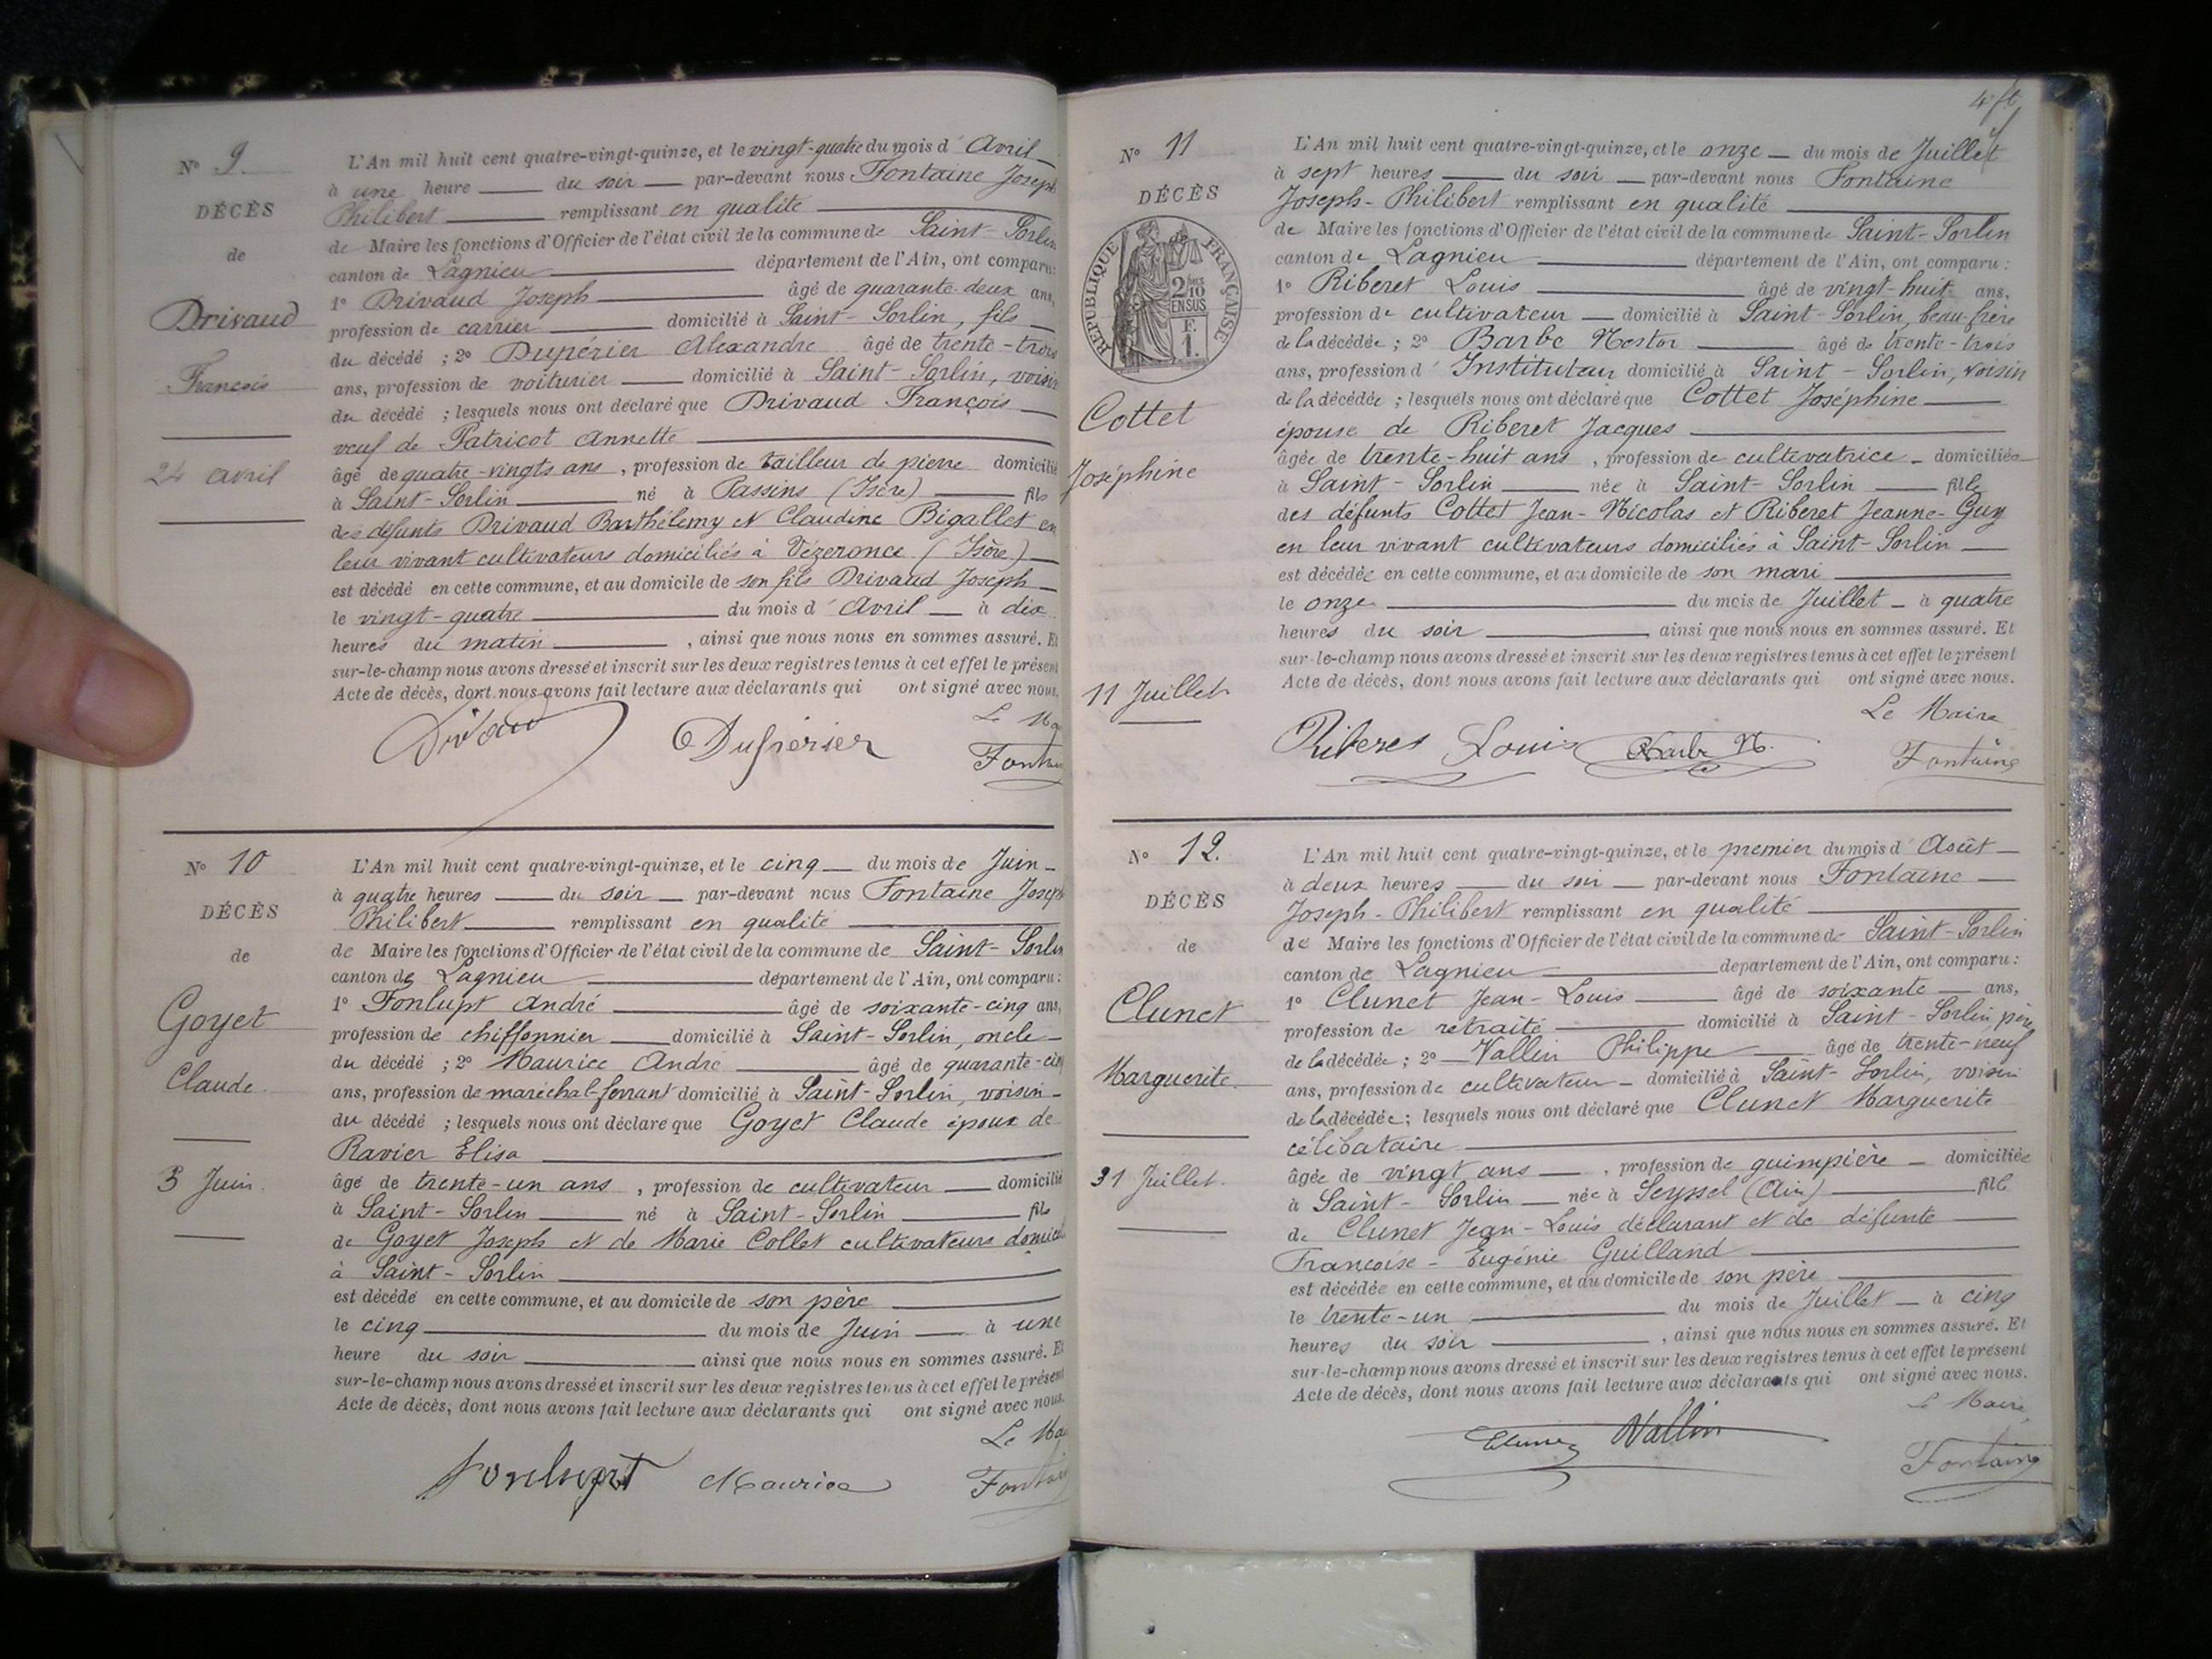 N° 9
DÉCÈS
de
Drivaud
François
24 avril
L'An mil huit cent quatre-vingt-quinze, et le vingt-quatre du mois d'Avril
à une heure du soir par-devant nous Fontaine Joseph
Philibert remplissant en qualité
de Maire les fonctions d'Officier de l'état civil de la commune de Saint-Sorlin
canton de Lagnieu département de l'Ain, ont comparu:
1° Drivaud Joseph âgé de quarante-deux ans,
profession de carrier domicilié à Saint-Sorlin, fils
du décédé ; 2° Dupérier Alexandre âgé de trente-trois
ans, profession de voiturier domicilié à Saint-Sorlin, voisin
du décédé ; lesquels nous ont déclaré que Drivaud François
veuf de Patricot Annette
âgé de quatre-vingts ans, profession de tailleur de pierre domicilié
à Saint-Sorlin né à Passins (Isère) fils
des défunts Drivaud Barthélemy et Claudine Bigallet en
leur vivant cultivateurs domiciliés à Vézeronce (Isère)
est décédé en cette commune, et au domicile de son fils Drivaud Joseph
le vingt-quatre du mois d'Avril à dix
heures du matin, ainsi que nous nous en sommes assuré. Et
sur-le-champ nous avons dressé et inscrit sur les deux registres tenus à cet effet le présent
Acte de décès, dont nous avons fait lecture aux déclarants qui ont signé avec nous.
Le Ma
Drivaud Dupérier Fontai
N° 10
DÉCÈS
de
Goyet
Claude
5 Juin
L'An mil huit cent quatre-vingt-quinze, et le cinq du mois de Juin
à quatre heures du soir par-devant nous Fontaine Joseph
Philibert remplissant en qualité
de Maire les fonctions d'Officier de l'état civil de la commune de Saint-Sorlin
canton de Lagnieu département de l'Ain, ont comparu:
1° Fonlupt André âgé de soixante-cinq ans,
profession de chiffonnier domicilié à Saint-Sorlin, oncle
du décédé ; 2° Maurice André âgé de quarante-cinq
ans, profession de maréchal-ferrant domicilié à Saint-Sorlin, voisin
du décédé ; lesquels nous ont déclaré que Goyet Claude époux de
Ravier Elisa
âgé de trente-un ans, profession de cultivateur domicilié
à Saint-Sorlin né à Saint-Sorlin fils
de Goyet Joseph et de Marie Collet cultivateurs domicil
à Saint-Sorlin
est décédé en cette commune, et au domicile de son père
le cinq du mois de Juin à une
heure du soir ainsi que nous nous en sommes assuré. Et
sur-le-champ nous avons dressé et inscrit sur les deux registres tenus à cet effet le présent
Acte de décès, dont nous avons fait lecture aux déclarants qui ont signé avec nous.
Le Ma
Fonlupt Maurice Fontai
N° 11
DÉCÈS
RÉPUBLIQUE FRANÇAISE
2/10 EN SUS
F. 1.
Cottet
Joséphine
11 Juillet
L'An mil huit cent quatre-vingt-quinze, et le onze du mois de Juillet
à sept heures du soir par-devant nous Fontaine
Joseph-Philibert remplissant en qualité
de Maire les fonctions d'Officier de l'état civil de la commune de Saint-Sorlin
canton de Lagnieu département de l'Ain, ont comparu :
1° Riberet Louis âgé de vingt-huit ans,
profession de cultivateur domicilié à Saint-Sorlin, beau-frère
de la décédée ; 2° Barbe Nestor âgé de trente-trois
ans, profession d'Instituteur domicilié à Saint-Sorlin, voisin
de la décédée ; lesquels nous ont déclaré que Cottet Joséphine
épouse de Riberet Jacques
âgée de trente-huit ans, profession de cultivatrice domiciliée
à Saint-Sorlin née à Saint-Sorlin fille
des défunts Cottet Jean-Nicolas et Riberet Jeanne-Guy
en leur vivant cultivateurs domiciliés à Saint-Sorlin
est décédée en cette commune, et au domicile de son mari
le onze du mois de Juillet à quatre
heures du soir ainsi que nous nous en sommes assuré. Et
sur-le-champ nous avons dressé et inscrit sur les deux registres tenus à cet effet le présent
Acte de décès, dont nous avons fait lecture aux déclarants qui ont signé avec nous.
Le Maire
Riberet Louis Barbe N. Fontaine
N° 12.
DÉCÈS
de
Clunet
Marguerite
31 Juillet
L'An mil huit cent quatre-vingt-quinze, et le premier du mois d'Août
à deux heures du soir par-devant nous Fontaine
Joseph-Philibert remplissant en qualité
de Maire les fonctions d'Officier de l'état civil de la commune de Saint-Sorlin
canton de Lagnieu département de l'Ain, ont comparu :
1° Clunet Jean-Louis âgé de soixante ans,
profession de retraité domicilié à Saint-Sorlin, père
de la décédée ; 2° Vallin Philippe âgé de trente-neuf
ans, profession de cultivateur domicilié à Saint-Sorlin, voisin
de la décédée ; lesquels nous ont déclaré que Clunet Marguerite
célibataire
âgée de vingt ans, profession de guimpière domiciliée
à Saint-Sorlin née à Seyssel (Ain) fille
de Clunet Jean-Louis déclarant et de défunte
Françoise-Eugénie Guilland
est décédée en cette commune, et au domicile de son père
le trente-un du mois de Juillet à cinq
heures du soir, ainsi que nous nous en sommes assuré. Et
sur-le-champ nous avons dressé et inscrit sur les deux registres tenus à cet effet le présent
Acte de décès, dont nous avons fait lecture aux déclarants qui ont signé avec nous.
Le Maire
Clunet Vallin Fontaine